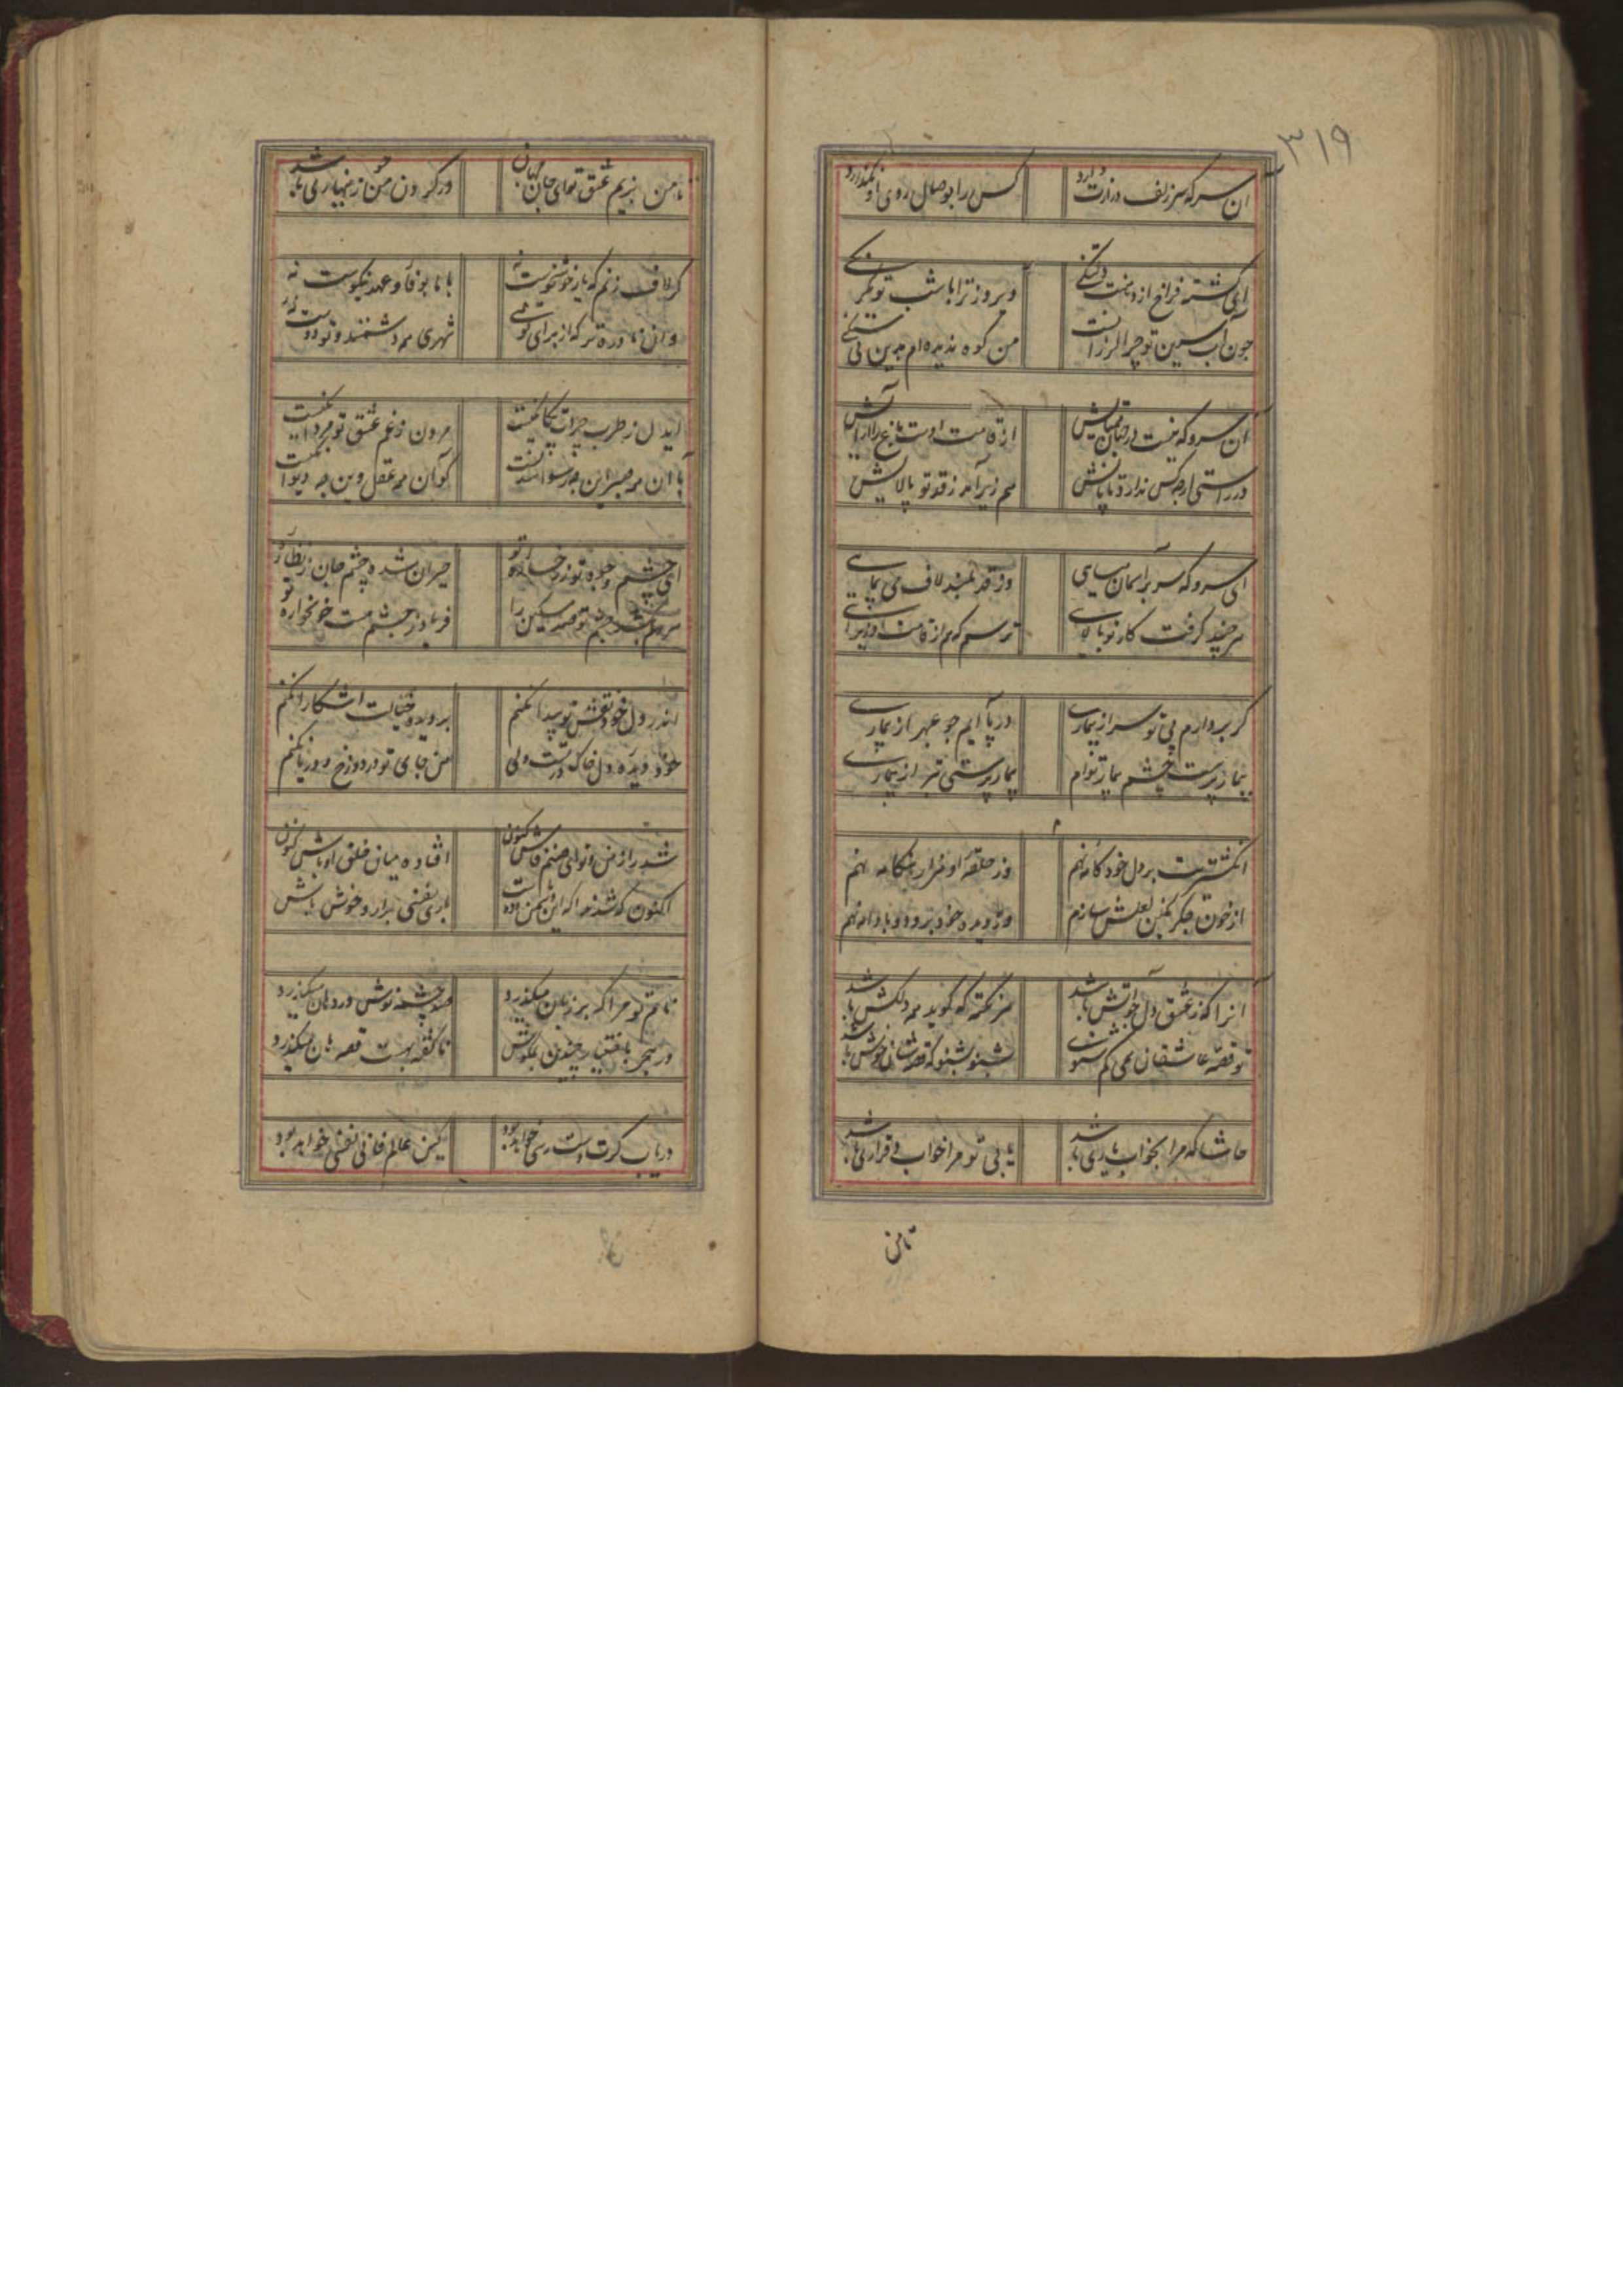 ۳۱۹
آن سر که سر زلف درازت دارد کس را بوصال روی او نگذارد
ای گشته فراخ از دهنت دلتنگی وی روز ترا با شب تو
چون آب سین تو چرا لرزانست من کوه ندیده ام بدین سنگی
آن سرو که نیست در جهان همتایش از قامت اوست باغ را آرایش
در راستی ارچه کس ندارد پایش هم زیر آمد ز قد تو بالایش
ای سرو که سر بر آسمان میسایی وز قد بلند لاف می پیمایی
هر چند گرفت کار تو بالایی ترسم که هم از قامت او
گر بردارم بی تو سر از بیماری در پا آیم چو عبهر از بیماری
بیمار پرست چشم بیمار توام بیمار پرستی بتر از بیماری
انگشتریت بر دل خود کامه نهم وز حلقه او هزار هنگامه نهم
از خون جگر نگین لعلش سازم وز دیده خود برو دو بادامه نهم
انرا که ز عشق دل بر آتش باشد هر نکته که گوید همه دلکش باشد
تو قصه عاشقان همی کم شنوی بشنو بشنو که قصه شان خوش باشد
حاشا که مرا بخواب یاری باشد یا بی تو مرا خواب و قراری باشد
تا من
تا من بزیم عشق تو ای جان جهان در گردن من ز نهاری باشد
گر لاف زنم که یار خوشخوست نه با ما بوفا و عهد نیکوست نه
وان نادره تر که از برای تو شهری همه دشمنند و تو دوست نه
ایدل ز طرب چرات بیگانگیست مردن ز غم عشق تو مردانگیست
با آن همه صبر این چه رسوا کو آن همه عقل وین چه دیوانگیست
ای چشم و تو ز رخساره تو حیران شده چشم جان ز نظاره تو
فریاد ز چشم مست خونخواره تو
اندر دل خود نقش تو پیدا نکنم بر دیده خیالت اشکارا نکنم
خود دیده و دل خاک درتست ولی من جای تو در دوزخ و دریا نکنم
شد راز من و تو ای صنم فاش کنون افتاده میان خلق اوباش کنون
اکنون که شدند اگه این باری نفسی برار و خوش باش
نامت تو مرا که بر زبان میگذرد صد چشمه نوش در دهان میگذرد
در هجر با چندین ناگفته بهست قصه بان میگذرد
دریاب گرت دست رسی خواهد بود کین عالم فانی نفسی خواهد بود